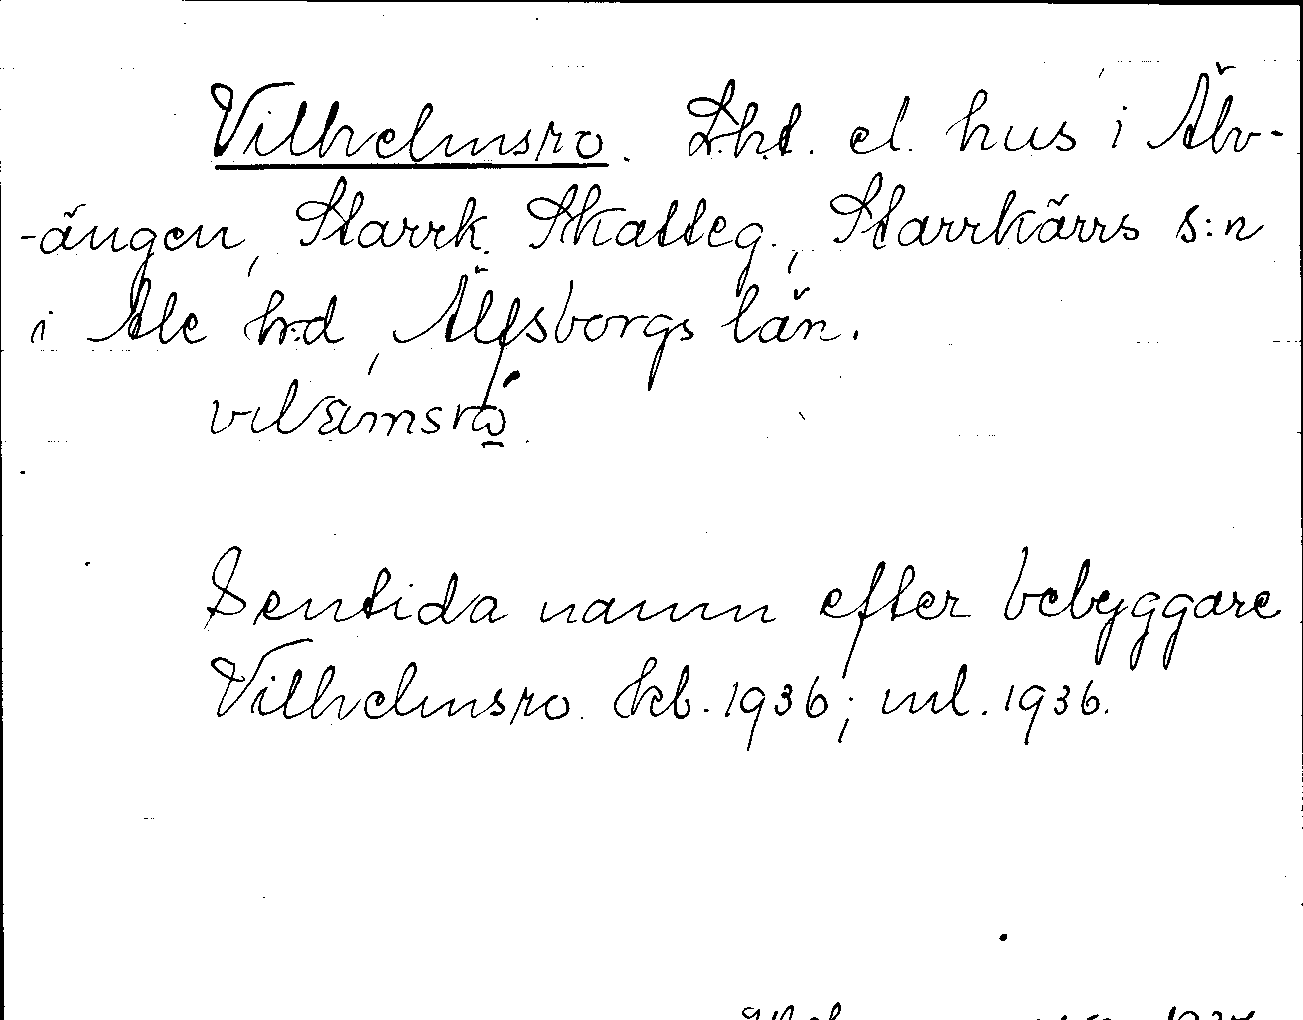 Vilhelmsro. Lht. el. hus i Älv-
-ängen, Starrk. Skatteg., Starrkärrs s:n
i Ale hrd, Älfsborgs län.
Sentida namn efter bebyggare
Vilhelmsro kb. 1936; ml. 1936.